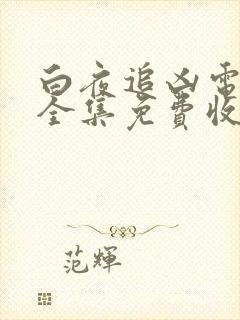 白夜追凶電
全集免費收
范輝